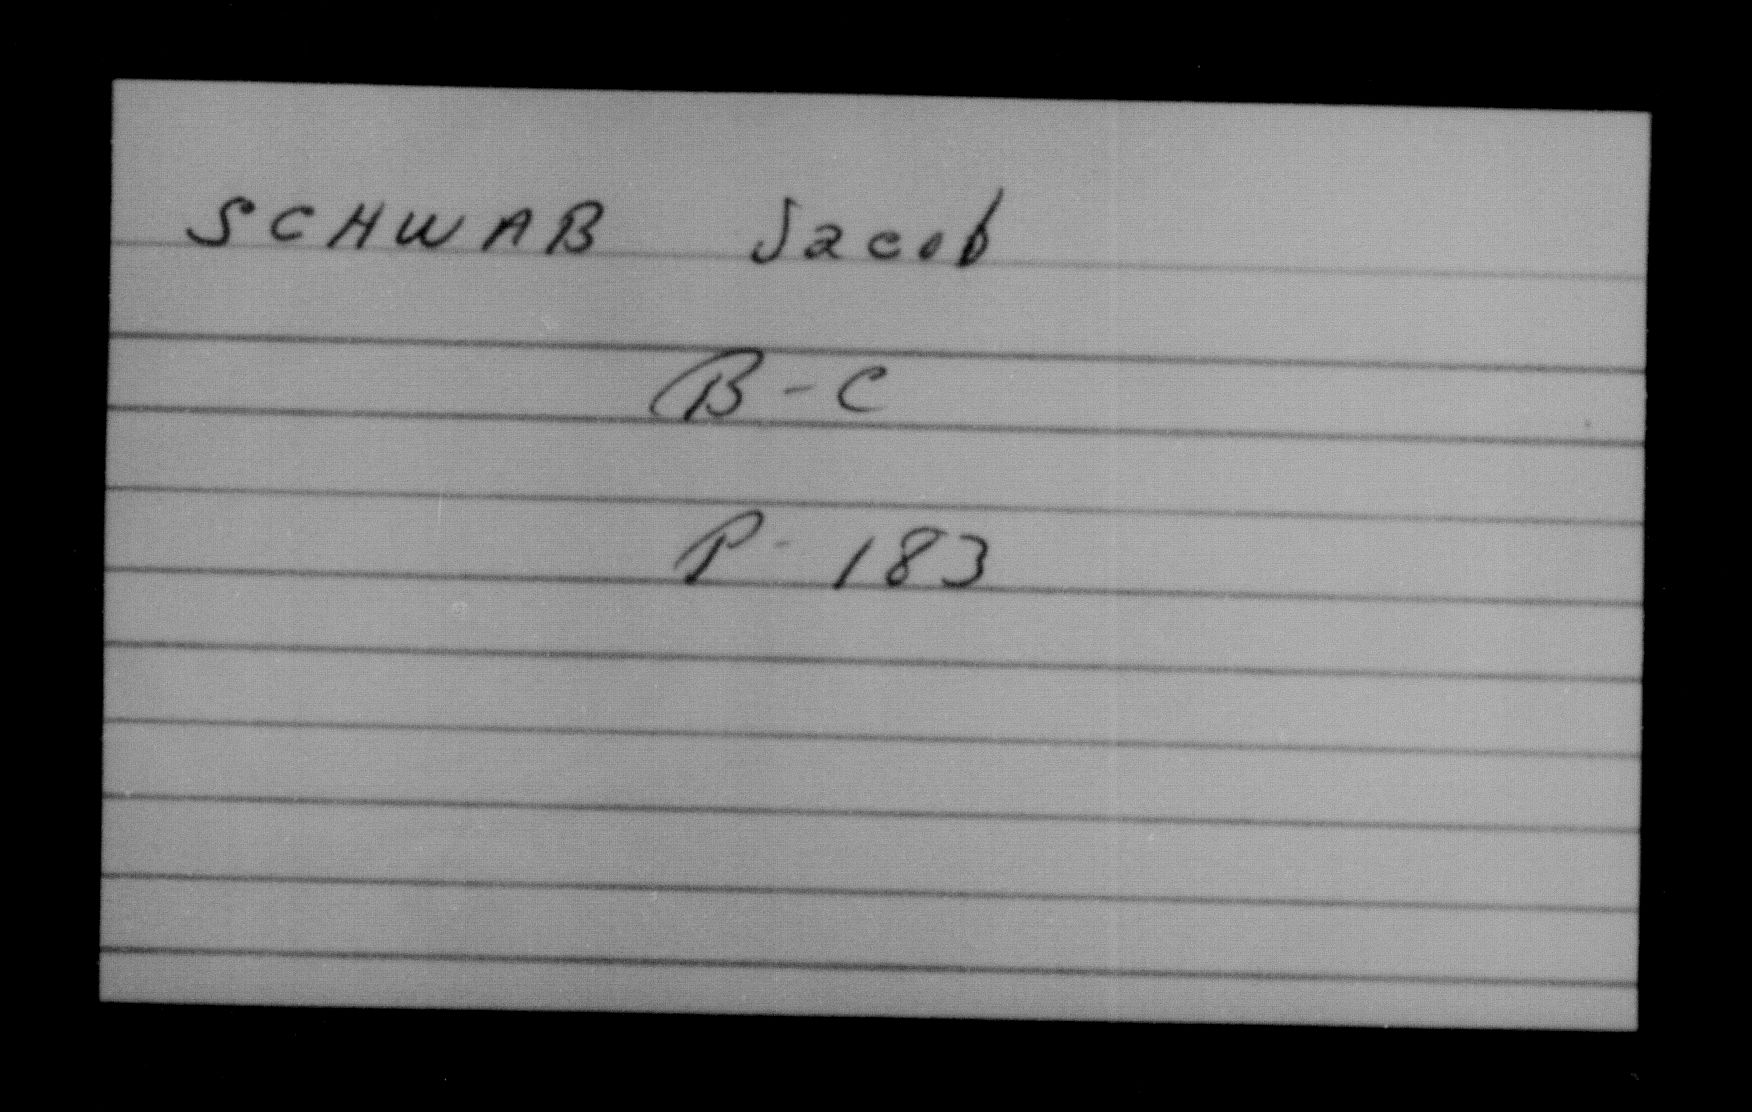 SCHWAB Jacob
B-C
P-183